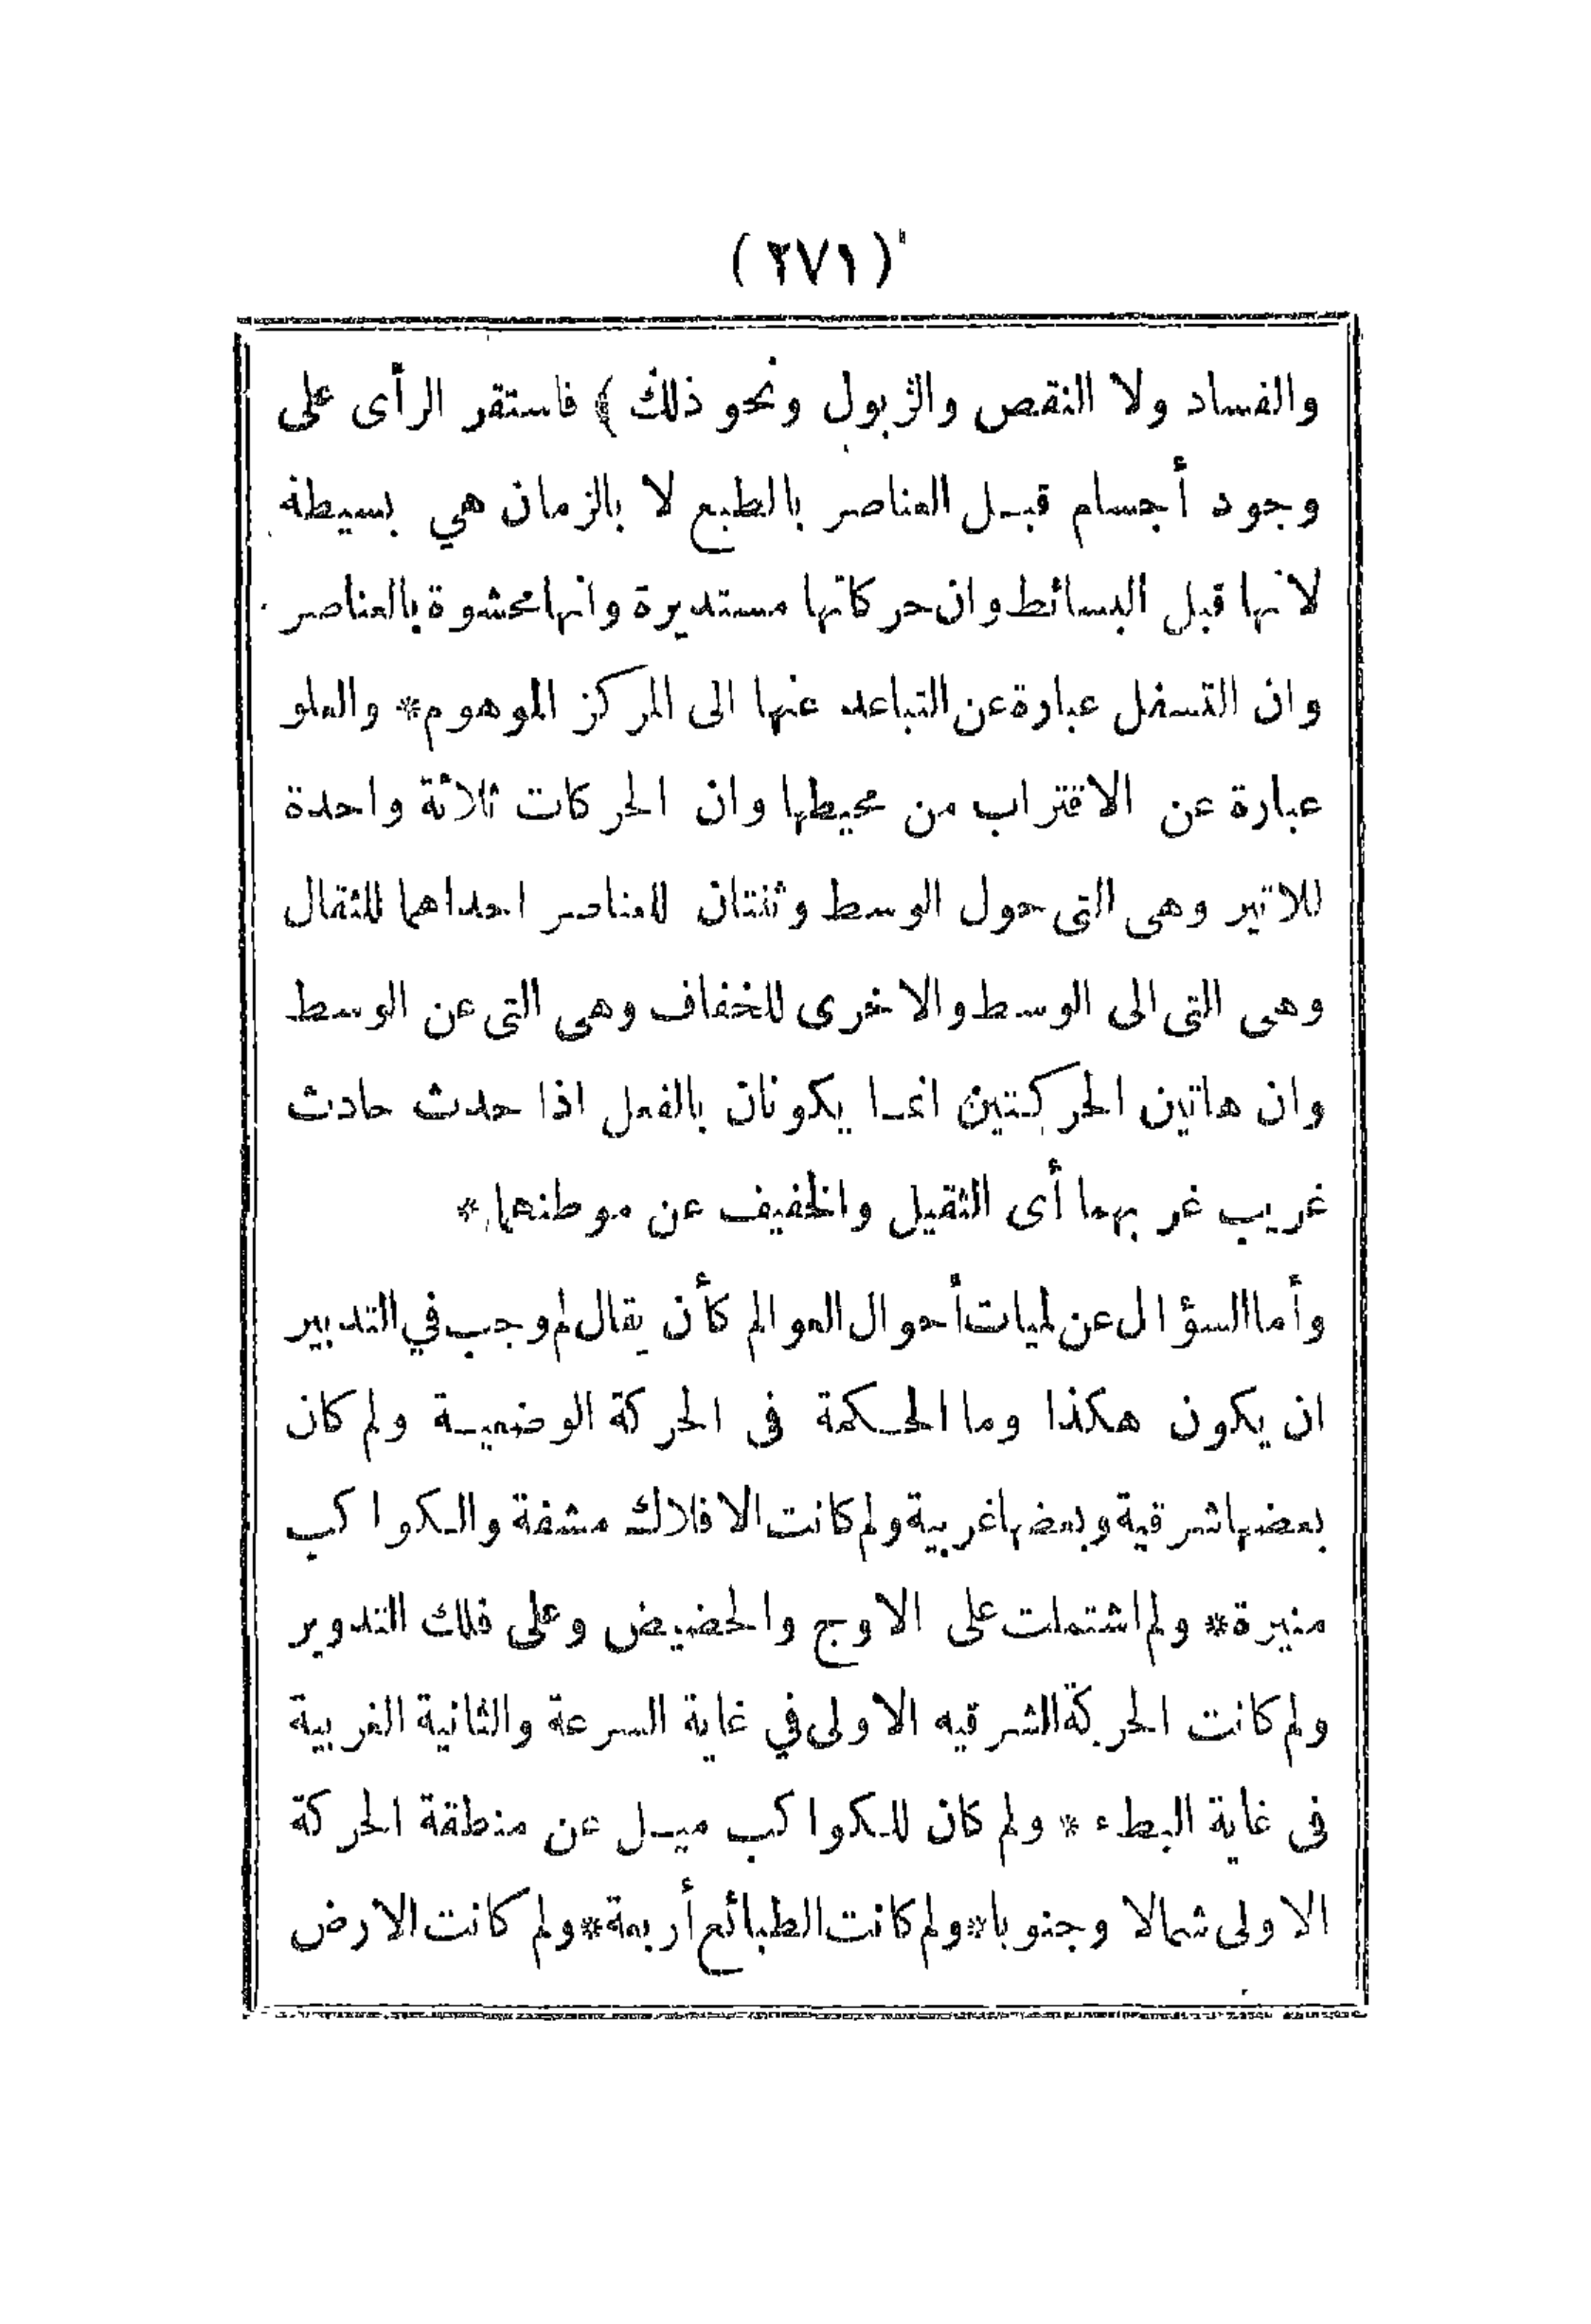 (٢٧١)
والفساد ولا النقص والزبول ونحو ذلك ﴾ فاستقر الرأى على
وجود أجسام قبل العناصر بالطبع لا بالزمان هي بسيطة
لانها قبل البسائط وان حركاتها مستديرة وانها محشوة بالعناصر
وان التسفل عبارة عن التباعد عنها الى المركز الموهوم * والعلو
عبارة عن الاقتراب من محيطها وان الحركات ثلاثة واحدة
للاثير وهى التى حول الوسط وثنتان للعناصر احداهما للثقال
وهى التى الى الوسط والاخرى للخفاف وهى التى عن الوسط
وان هاتين الحركتين انما يكونان بالفعل اذا حدث حادث
غريب غر بهما أى الثقيل والخفيف عن موطنهما *
وأما السؤال عن لميات أحوال العوالم كأن يقال لم وجب في التدبير
ان يكون هكذا وما الحكمة فى الحركة الوضعية ولم كان
بعضها شرقية وبعضها غربية ولم كانت الافلاك مشفة والكواكب
منيرة * ولم اشتملت على الاوج والحضيض وعلى فلك التدوير
ولم كانت الحركة الشرقيه الاولى في غاية السرعة والثانية الغربية
فى غاية البطء * ولم كان للكواكب ميل عن منطقة الحركة
الاولى شمالا وجنوبا * ولم كانت الطبائع أربعة * ولم كانت الارض